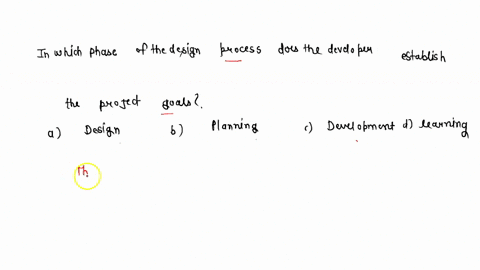 In which phase of the design process does the devloper establish
the project goals?
a) Design b) Planning c) Development d) learning
Th